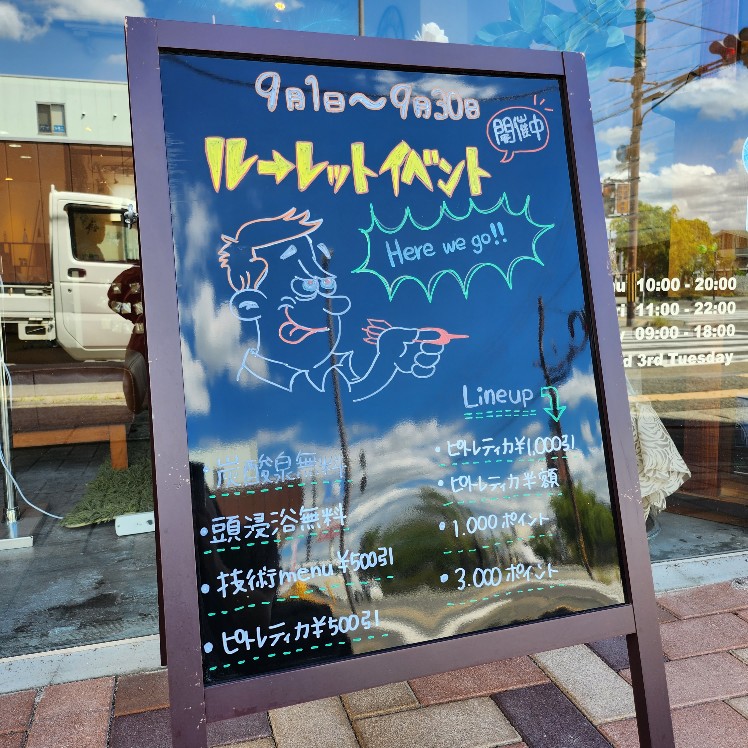 9月1日～9月30日
開催中
ルーレットイベント
Here we go!!
Lineup
・炭酸泉無料
・頭浸浴無料
・技術menu¥500引
・ピトレティカ¥500引
・ピトレティカ¥1,000引
・ピトレティカ半額
・1.000ポイント
・3.000ポイント
10:00 - 20:00
11:00 - 22:00
09:00 - 18:00
3rd Tuesday